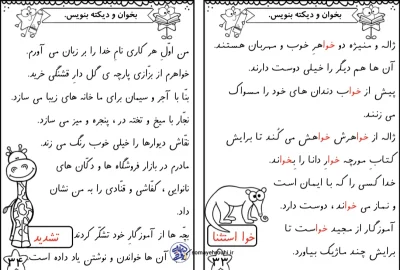 بخوان و دیکته بنویس.
ژاله و منیژه دو خواهرِ خوب و مهربان هستند.
آن ها هم دیگر را خیلی دوست دارند.
پیش از خواب دندان های خود را مسواک
می زنند.
ژاله از خواهرش خواهش می کُند تا برایش
کتابِ مورچه خوارِ دانا را بِخواند.
خدا کسی را که با ایمان است
و نماز می خواند، دوست دارد.
خواست تا از آموزگار مجید
برایش چند ماژیک بیاورد.
خوا استثنا
۳۳
بخوان و دیکته بنویس.
من اوّلِ هر کاری نام خدا را بر زبان می آورم.
خواهرم از بزّازی پارچه ی گل دارِ قشنگی خرید.
بنّا با آجر و سیمان برای ما خانه های زیبا می سازد.
نجّار با میخ و تخته در ، پنجره و میز می سازد.
نقّاش دیوارها را خیلی خوب رنگ می زند.
مادرم در بازار فروشگاه ها و دکّان های
نانوایی ، کفّاشی و قنّادی را به من نشان
داد.
بچّه ها از آموزگارِ خود تشکّر کردند.
آن ها خواندن و نوشتن یاد داده است.
تشدید
۳۴